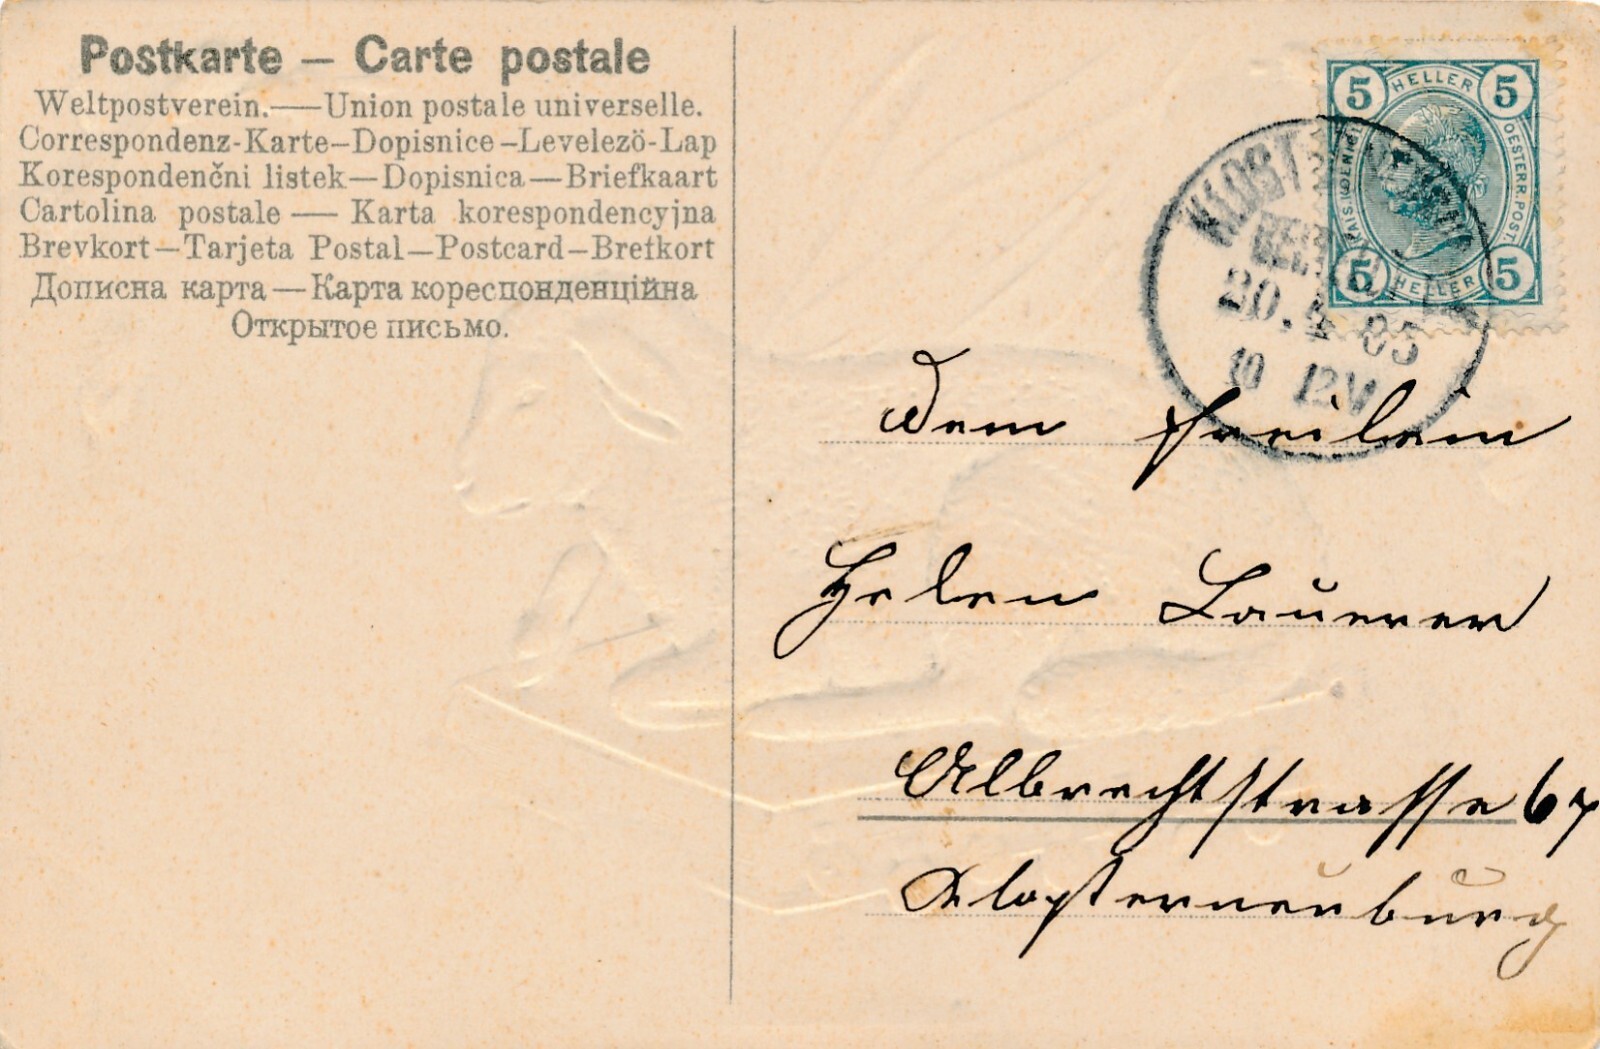 Postkarte — Carte postale
Weltpostverein.—Union postale universelle.
Correspondenz-Karte—Dopisnice—Levelezö-Lap
Korespondenčni listek—Dopisnica—Briefkaart
Cartolina postale — Karta korespondencyjna
Brevkort—Tarjeta Postal—Postcard—Brefkort
Дописна карта—Карта кореспонденційна
Открытое письмо.
5 HELLER 5
KAIS. KOENIGL. OESTERR. POST.
5 HELLER 5
20. 4 05
10 12V
Dem Freilein
Helen Lauerer
Albrechtstrasse 67
Klosterneuburg